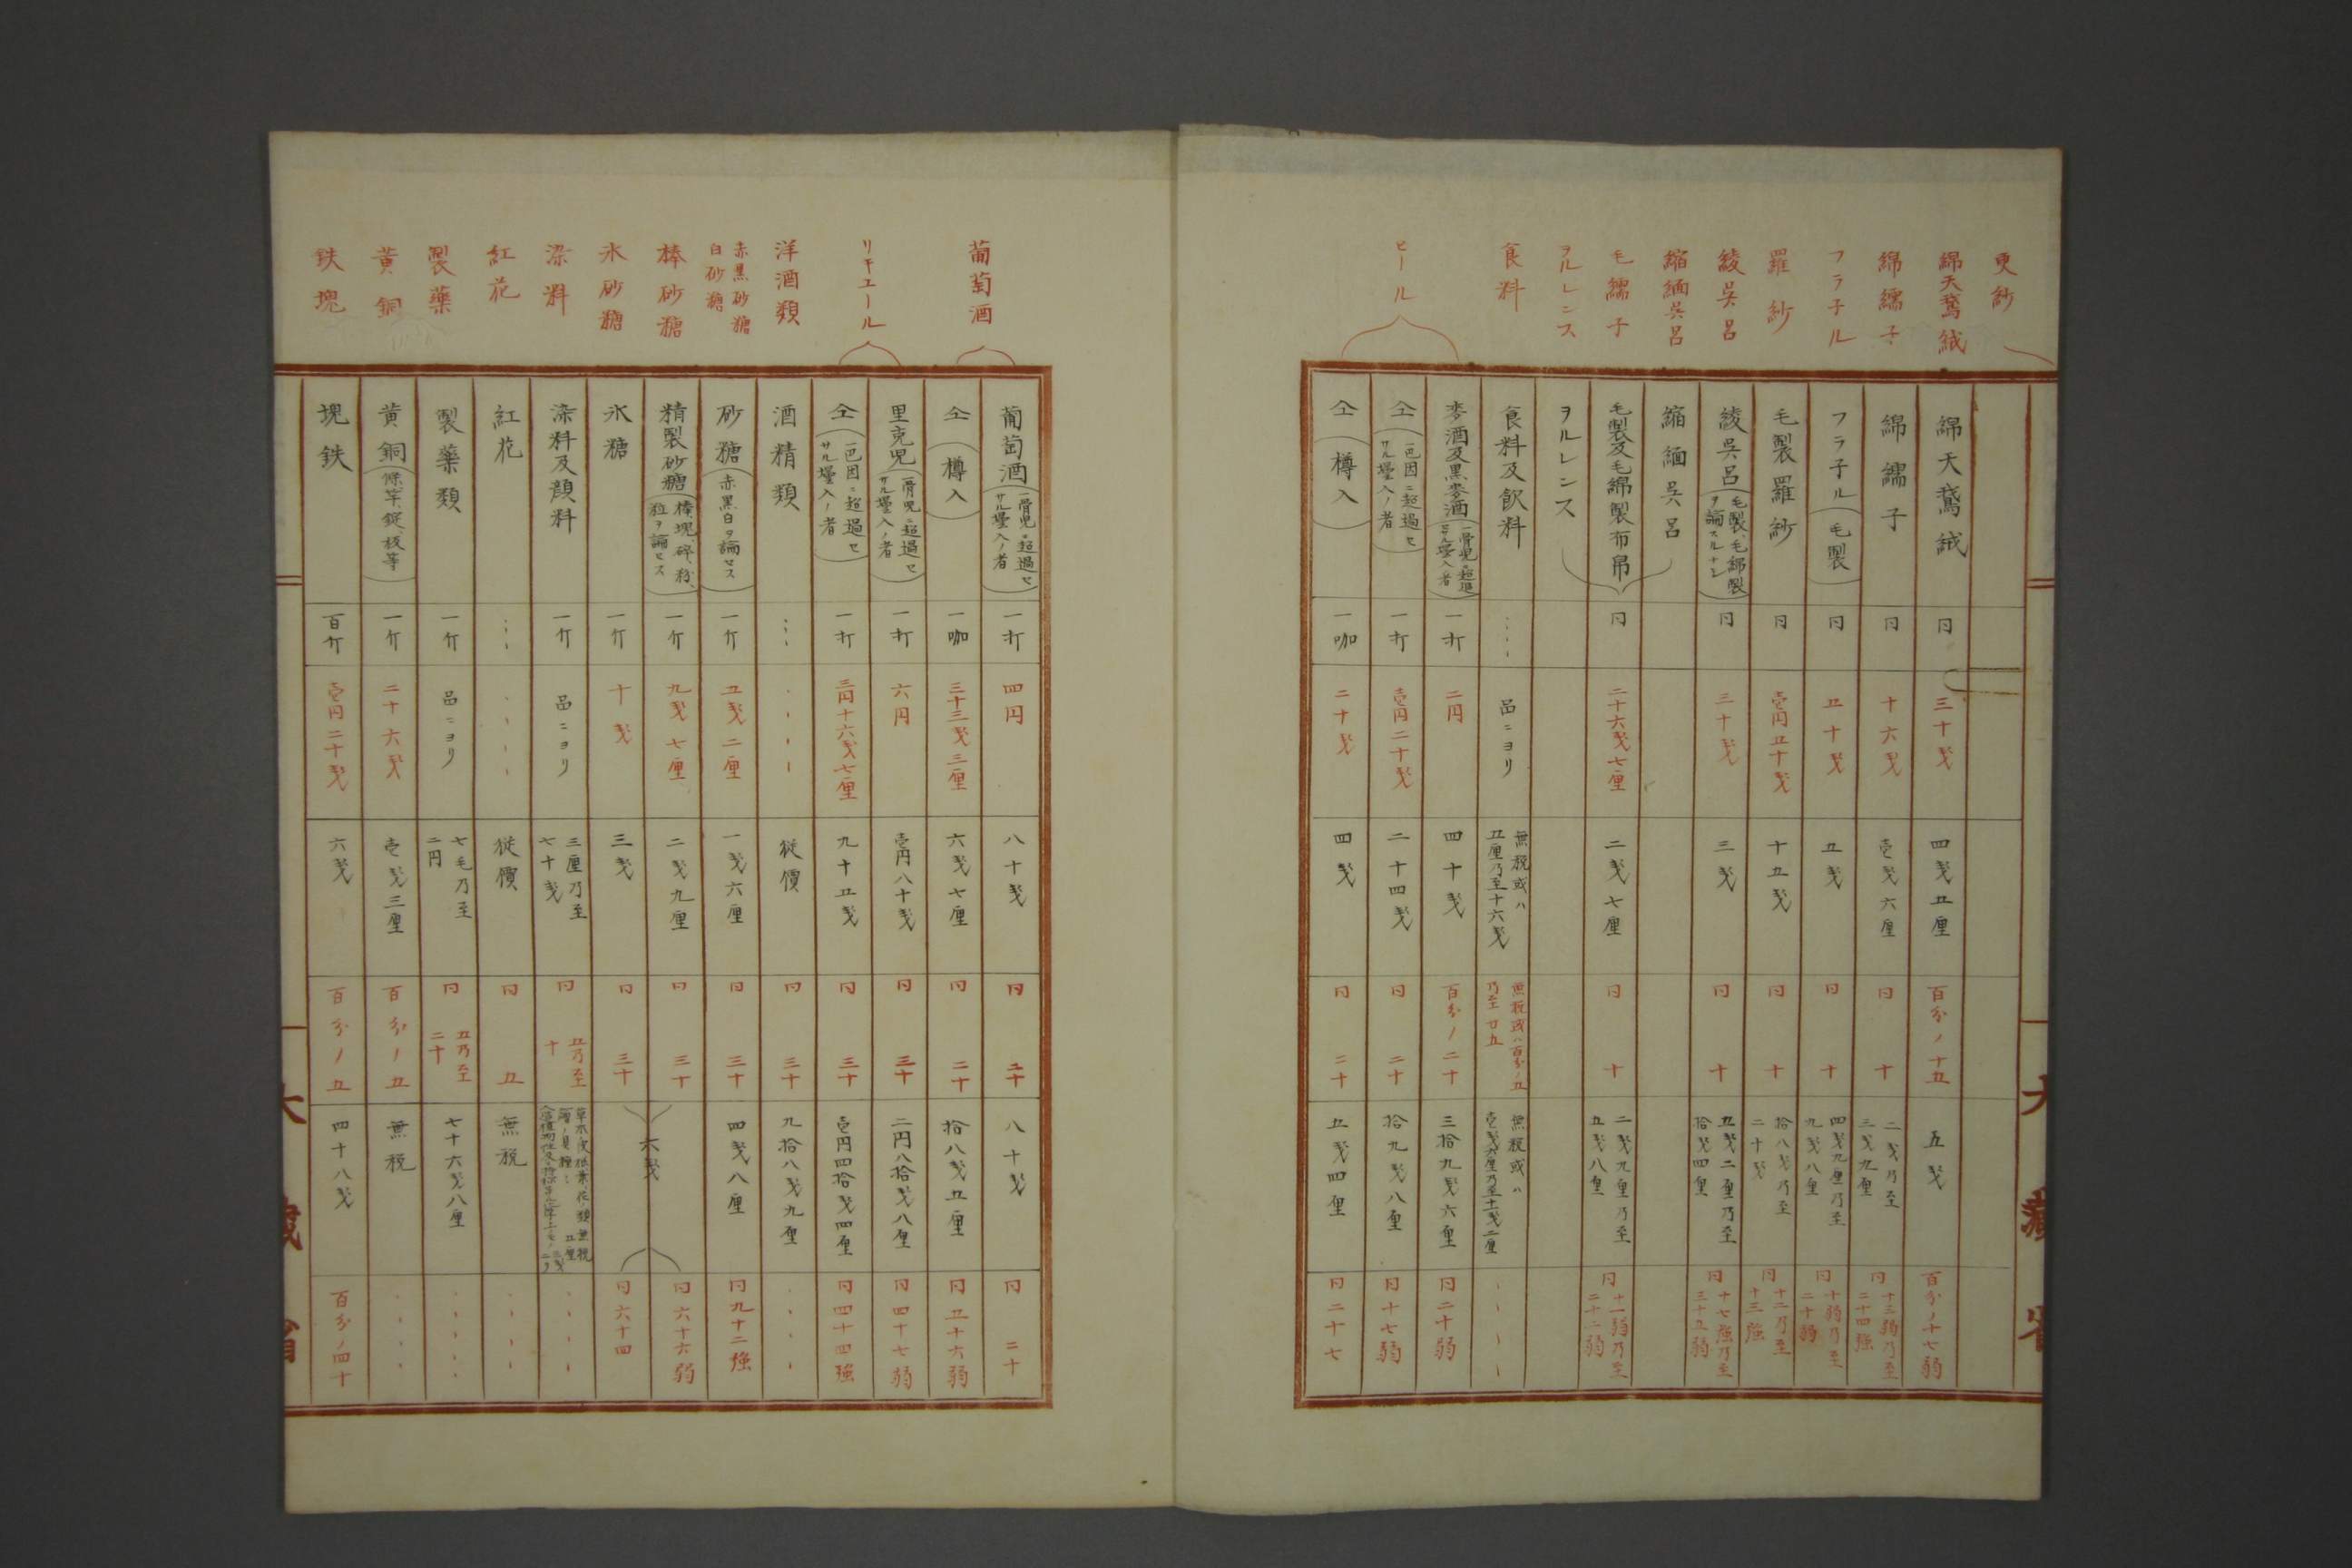 更紗
綿天鵞絨
綿繻子
フラ子ル
羅紗
綾呉呂
縮緬呉呂
毛繻子
ヲルレンス
食料
ビール
綿天鵞絨 同 三十戔 四戔五厘 百分ノ十五 五戔 百分ノ十七弱
綿繻子 同 十六戔 壱戔六厘 同 十 二戔乃至三戔九厘 同 十三弱乃至二十四強
フラ子ル(毛製) 同 五十戔 五戔 同 十 四戔九厘乃至九戔八厘 同 十弱乃至二十弱
毛製羅紗 同 壱円五十戔 十五戔 同 十 拾八戔乃至二十戔 同 十二乃至十三強
綾呉呂(毛製、毛綿製ヲ論スルナシ) 同 三十戔 三戔 同 十 五戔二厘乃至拾戔四厘 同 十七強乃至三十五弱
縮緬呉呂
毛製及毛綿製布帛 同 二十六戔七厘 二戔七厘 同 十 二戔九厘乃至五戔八厘 同 十一弱乃至二十二弱
ヲルレンス
食料及飲料 品ニヨリ 無税或ハ五厘乃至十六戔 無税或ハ百分ノ五乃至廿五 無税或ハ壱戔六厘乃至十一戔二厘
麥酒及黒麥酒(一骨児ニ超過セサル壜入ノ者) 一打 二円 四十戔 百分ノ二十 三拾九戔六厘 同二十弱
仝(一巴因ニ超過セサル壜入ノ者) 一打 壱円二十戔 二十四戔 同 二十 拾九戔八厘 同十七弱
仝(樽入) 一咖 二十戔 四戔 同 二十 五戔四厘 同二十七
大藏省
葡萄酒
リキエール
洋酒類
赤黒砂糖
白砂糖
棒砂糖
氷砂糖
染料
紅花
製藥
黄銅
鉄塊
葡萄酒(一骨児ニ超過セサル壜入ノ者) 一打 四円 八十戔 同 二十 八十戔 同 二十
仝(樽入) 一咖 三十三戔三厘 六戔七厘 同 二十 拾八戔五厘 同五十六弱
里克児(一骨児ニ超過セサル壜入ノ者) 一打 六円 壱円八十戔 同 三十 二円八拾戔八厘 同四十七弱
仝(一巴因ニ超過セサル壜入ノ者) 一打 三円十六戔七厘 九十五戔 同 三十 壱円四拾戔四厘 同四十四強
酒精類 従價 同 三十 九拾八戔九厘
砂糖(赤黒白ヲ論セス) 一斤 五戔二厘 一戔六厘 同 三十 四戔八厘 同九十二強
精製砂糖(棒、塊、碎、粉、粒ヲ論セス) 一斤 九戔七厘 二戔九厘 同 三十 六戔 同六十六弱
氷糖 一斤 十戔 三戔 同 三十 同六十四
染料及顔料 一斤 品ニヨリ 三厘乃至七十戔 同 五乃至十
紅花 従價 同 五 無税
製藥類 一斤 品ニヨリ 七毛乃至二円 同 五乃至二十 七十六戔八厘
黄銅(條、竿、錠、板等) 一斤 二十六戔 壱戔三厘 百分ノ五 無税
塊鉄 百斤 壱円二十戔 六戔 百分ノ五 四十八戔 百分ノ四十
大藏省